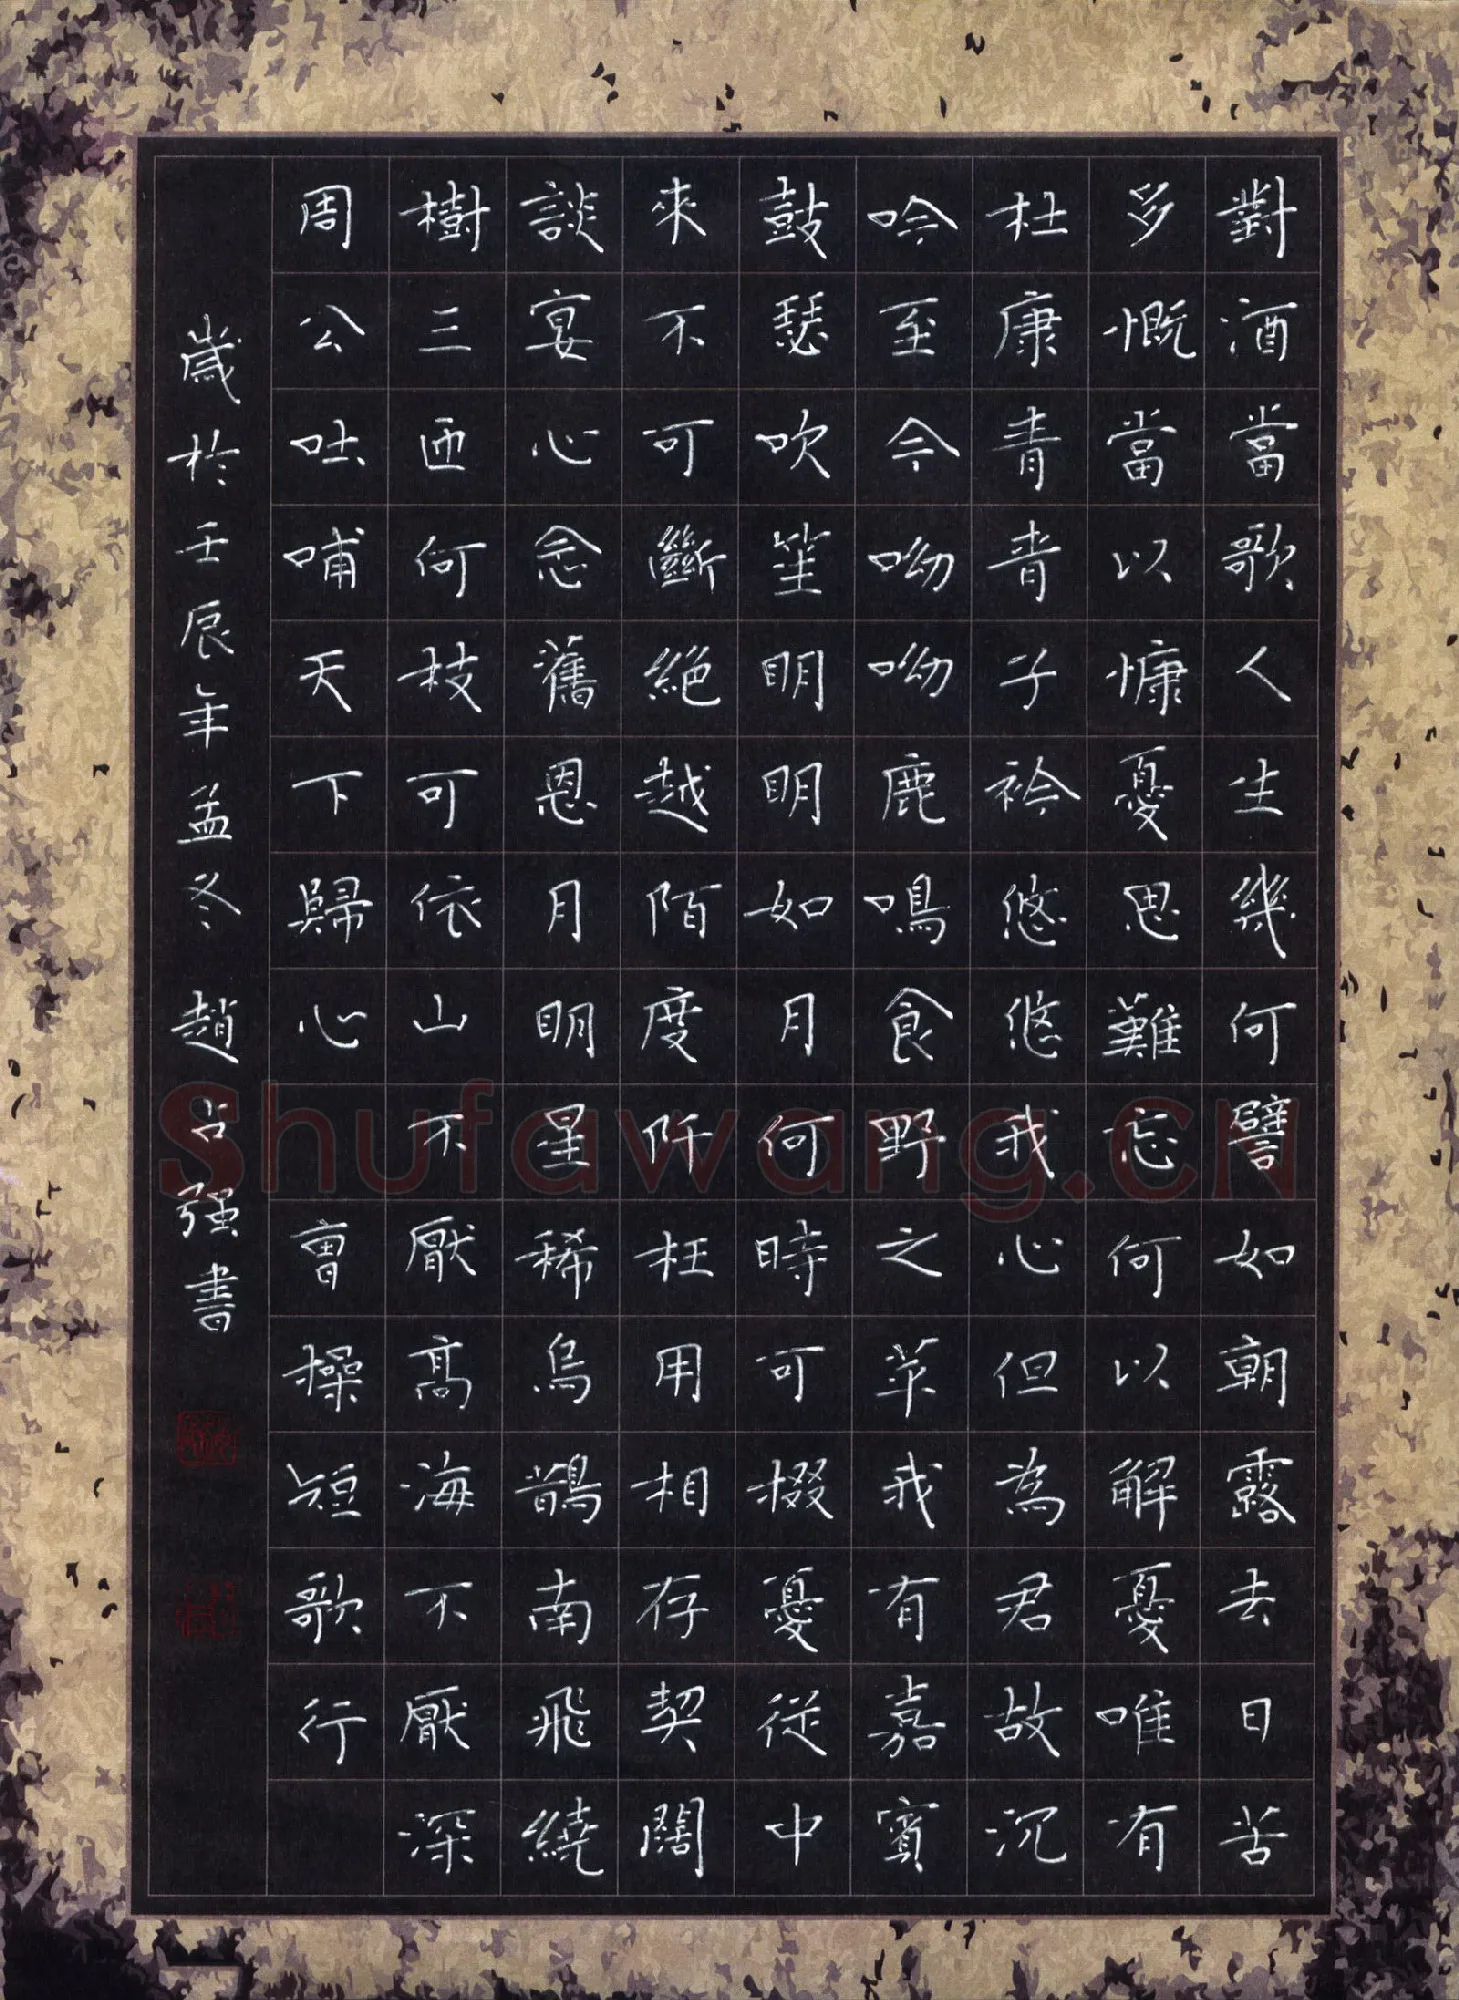 對酒當歌人生幾何譬如朝露去日苦
多慨當以慷憂思難忘何以解憂唯有
杜康青青子衿悠悠我心但為君故沉
吟至今呦呦鹿鳴食野之苹我有嘉賓
鼓瑟吹笙明明如月何時可掇憂從中
來不可斷絶越陌度阡枉用相存契闊
談宴心念舊恩月明星稀烏鵲南飛繞
樹三匝何枝可依山不厭高海不厭深
周公吐哺天下歸心 曹操短歌行
歲於壬辰年孟冬 趙占强書
Shufawang.CN